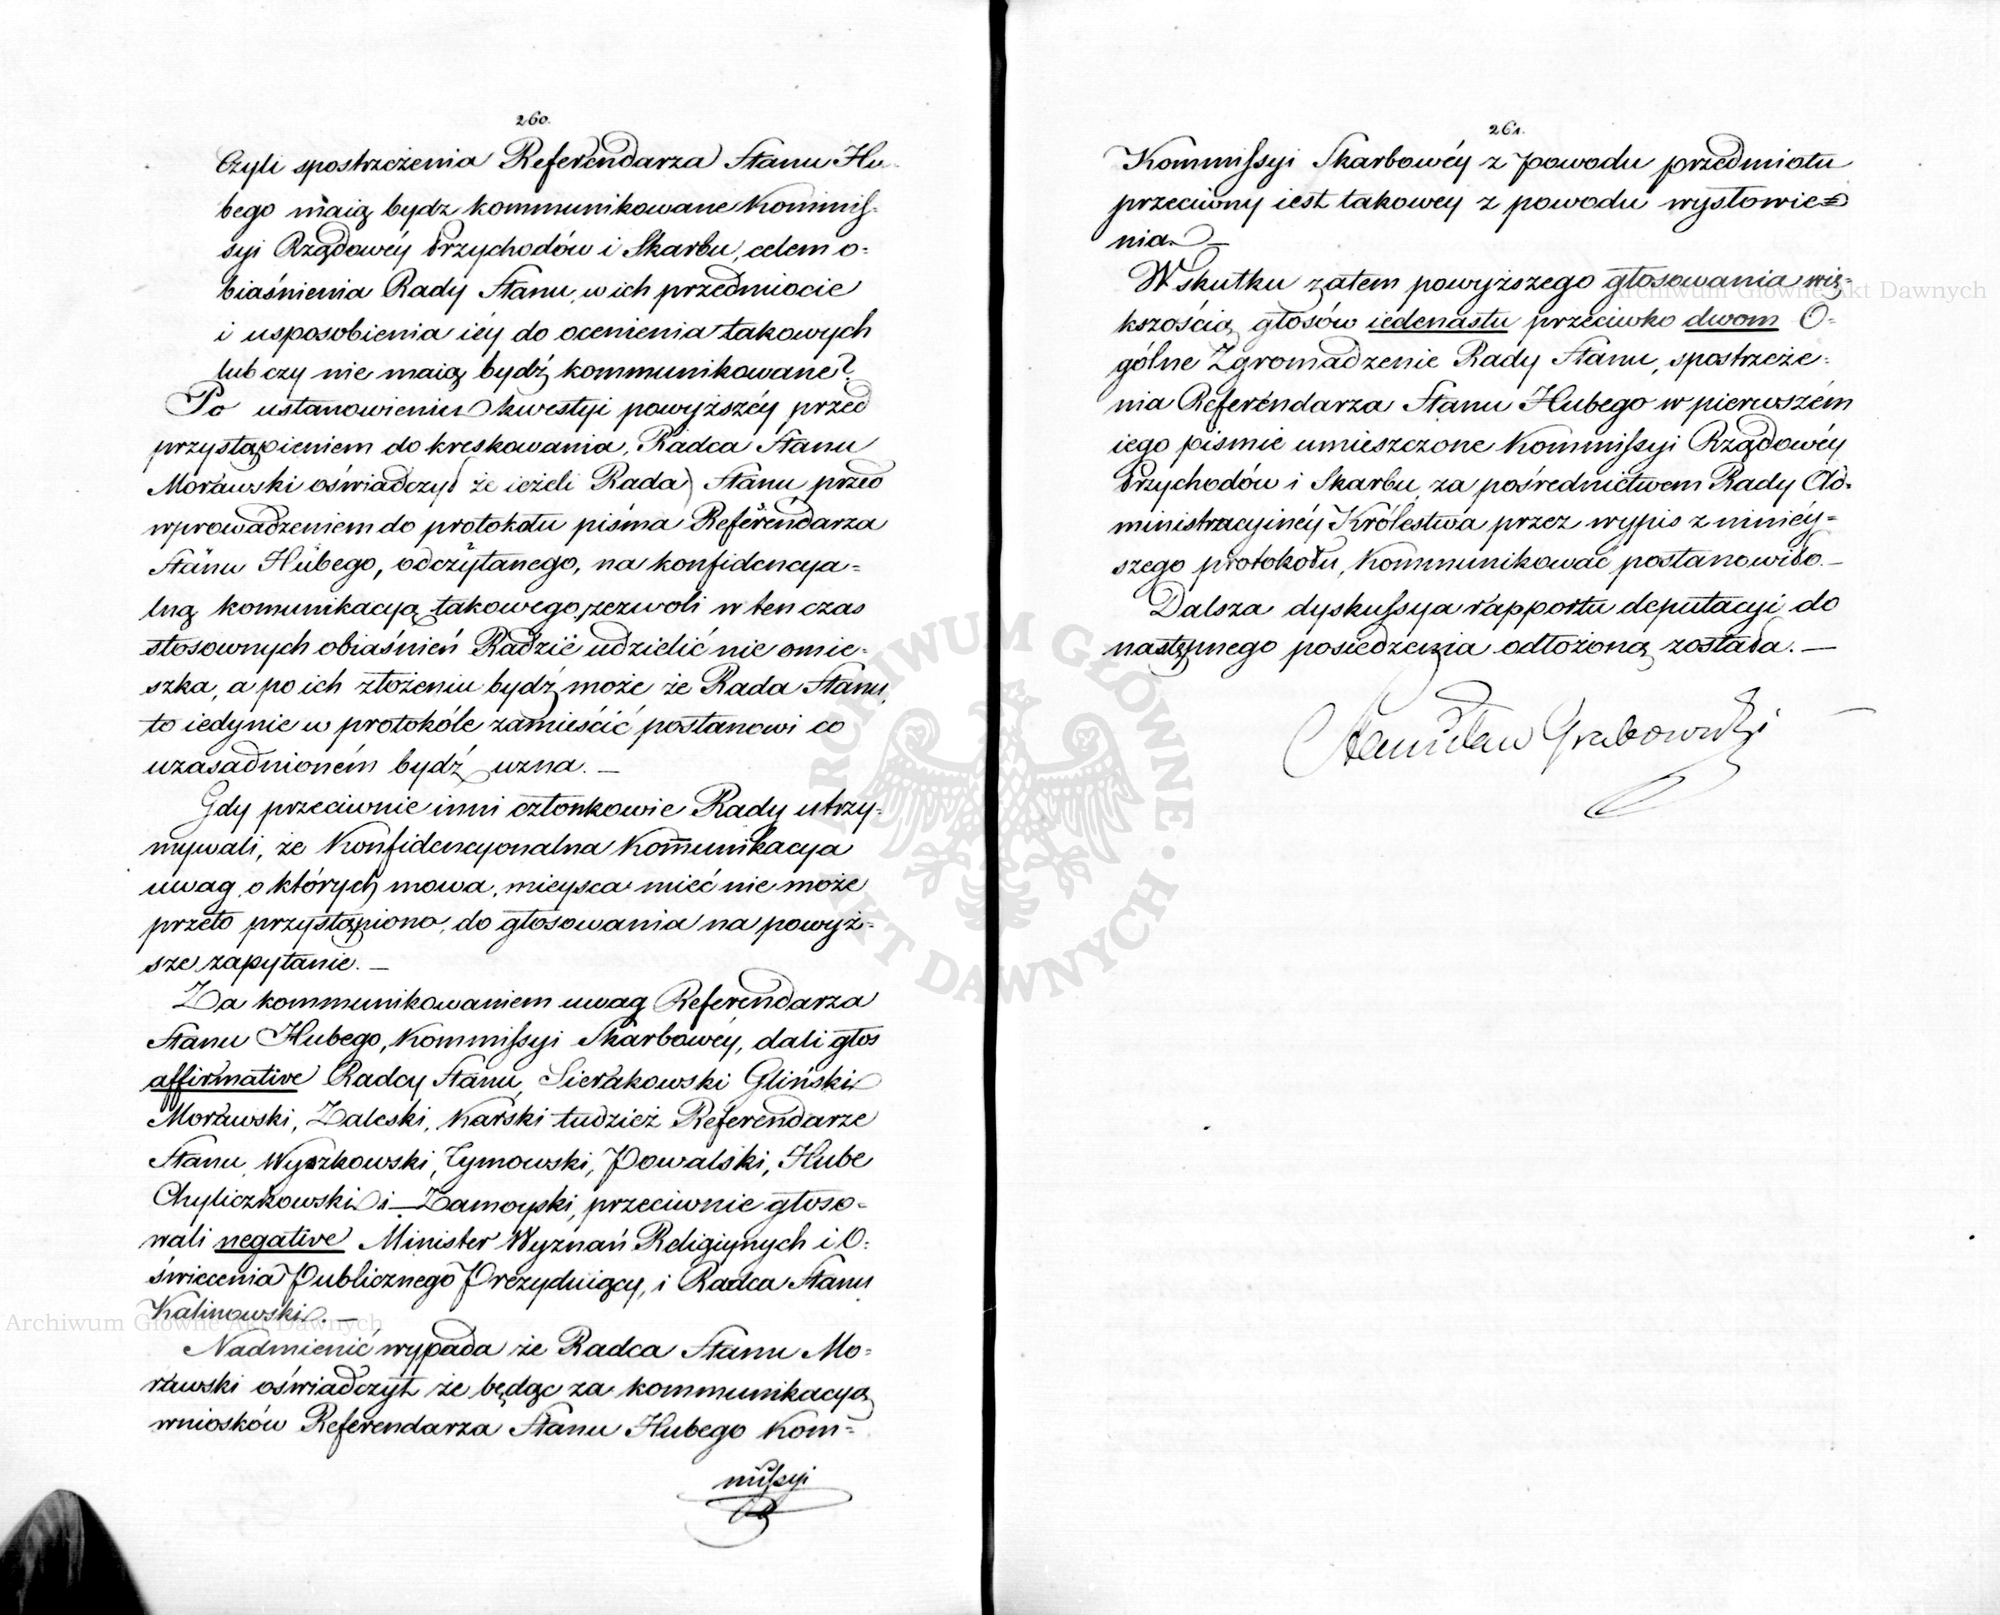 260.
Czyli spostrzeżenia Referendarza Stanu Hu-
bego maią bydz kommunikowane Kommis-
syi Rządowéy Przychodów i Skarbu, celem o-
biaśnienia Rady Stanu, w ich przedmiocie
i usposobienia iéy do ocenienia takowych
lub czy nie maią bydź kommunikowane?
Po ustanowieniu kwestyi powyższéy przed
przystąpieniem do kreskowania, Radca Stanu
Morawski oświadczył że ieżeli Rada Stanu, przed
wprowadzeniem do protokołu pisma Referendarza
Stanu Hubego, odczytanego, na konfidencya-
lną komunikacyą takowego, zezwoli w ten czas
stosownych obiaśnień Radzie udzielić nie omie-
szka, a po ich złożeniu bydź może że Rada Stanu,
to iedynie w protokóle zamieścić postanowi co
uzasadnioném bydź uzna. —
Gdy przeciwnie inni członkowie Rady utrzy-
mywali, że Konfidencyonalna Kommunikacya
uwag, o których mowa, mieysca mieć nie może
przeto przystąpiono, do głosowania na powyż-
sze zapytanie. —
Za kommunikowaniem uwag Referendarza
Stanu Hubego, Kommissyi Skarbowéy, dali głos
affirmative Radcy Stanu, Sierakowski Gliński
Morawski, Zaleski, Karski tudzież Referendarze
Stanu, Wyszkowski, Tymowski, Powalski, Hube
Chyliczkowski i Zamoyski, przeciwnie głoso-
wali negative Minister Wyznań Religiynych i O-
świecenia Publicznego Prezyduiący, i Radca Stanu
Kalinowski. —
Nadmienić wypada że Radca Stanu Mo-
rawski oświadczył że będąc za kommunikacyą
wniosków Referendarza Stanu Hubego Kom-
missyi
261.
Kommissyi Skarbowéy z powodu przedmiotu
przeciwny iest takowey z powodu wysłowie-
nia. —
W skutku zatem powyższego głosowania wię-
kszością głosów iedenastu przeciwko dwom O-
gólne Zgromadzenie Rady Stanu, spostrzeże-
nia Referendarza Stanu Hubego w pierwszém
iego piśmie umieszczone Kommissyi Rządowéy
Przychodów i Skarbu, za pośrednictwem Rady Ad-
ministracyinéy Królestwa przez wypis z niniéy-
szego protokołu, Kommunikować postanowiło. —
Dalsza dyskussya rapportu deputacyi do
następnego posiedzenia odłożoną została. —
Stanisław Grabowski
ARCHIWUM GŁÓWNE AKT DAWNYCH
Archiwum Główne Akt Dawnych
Archiwum Główne Akt Dawnych